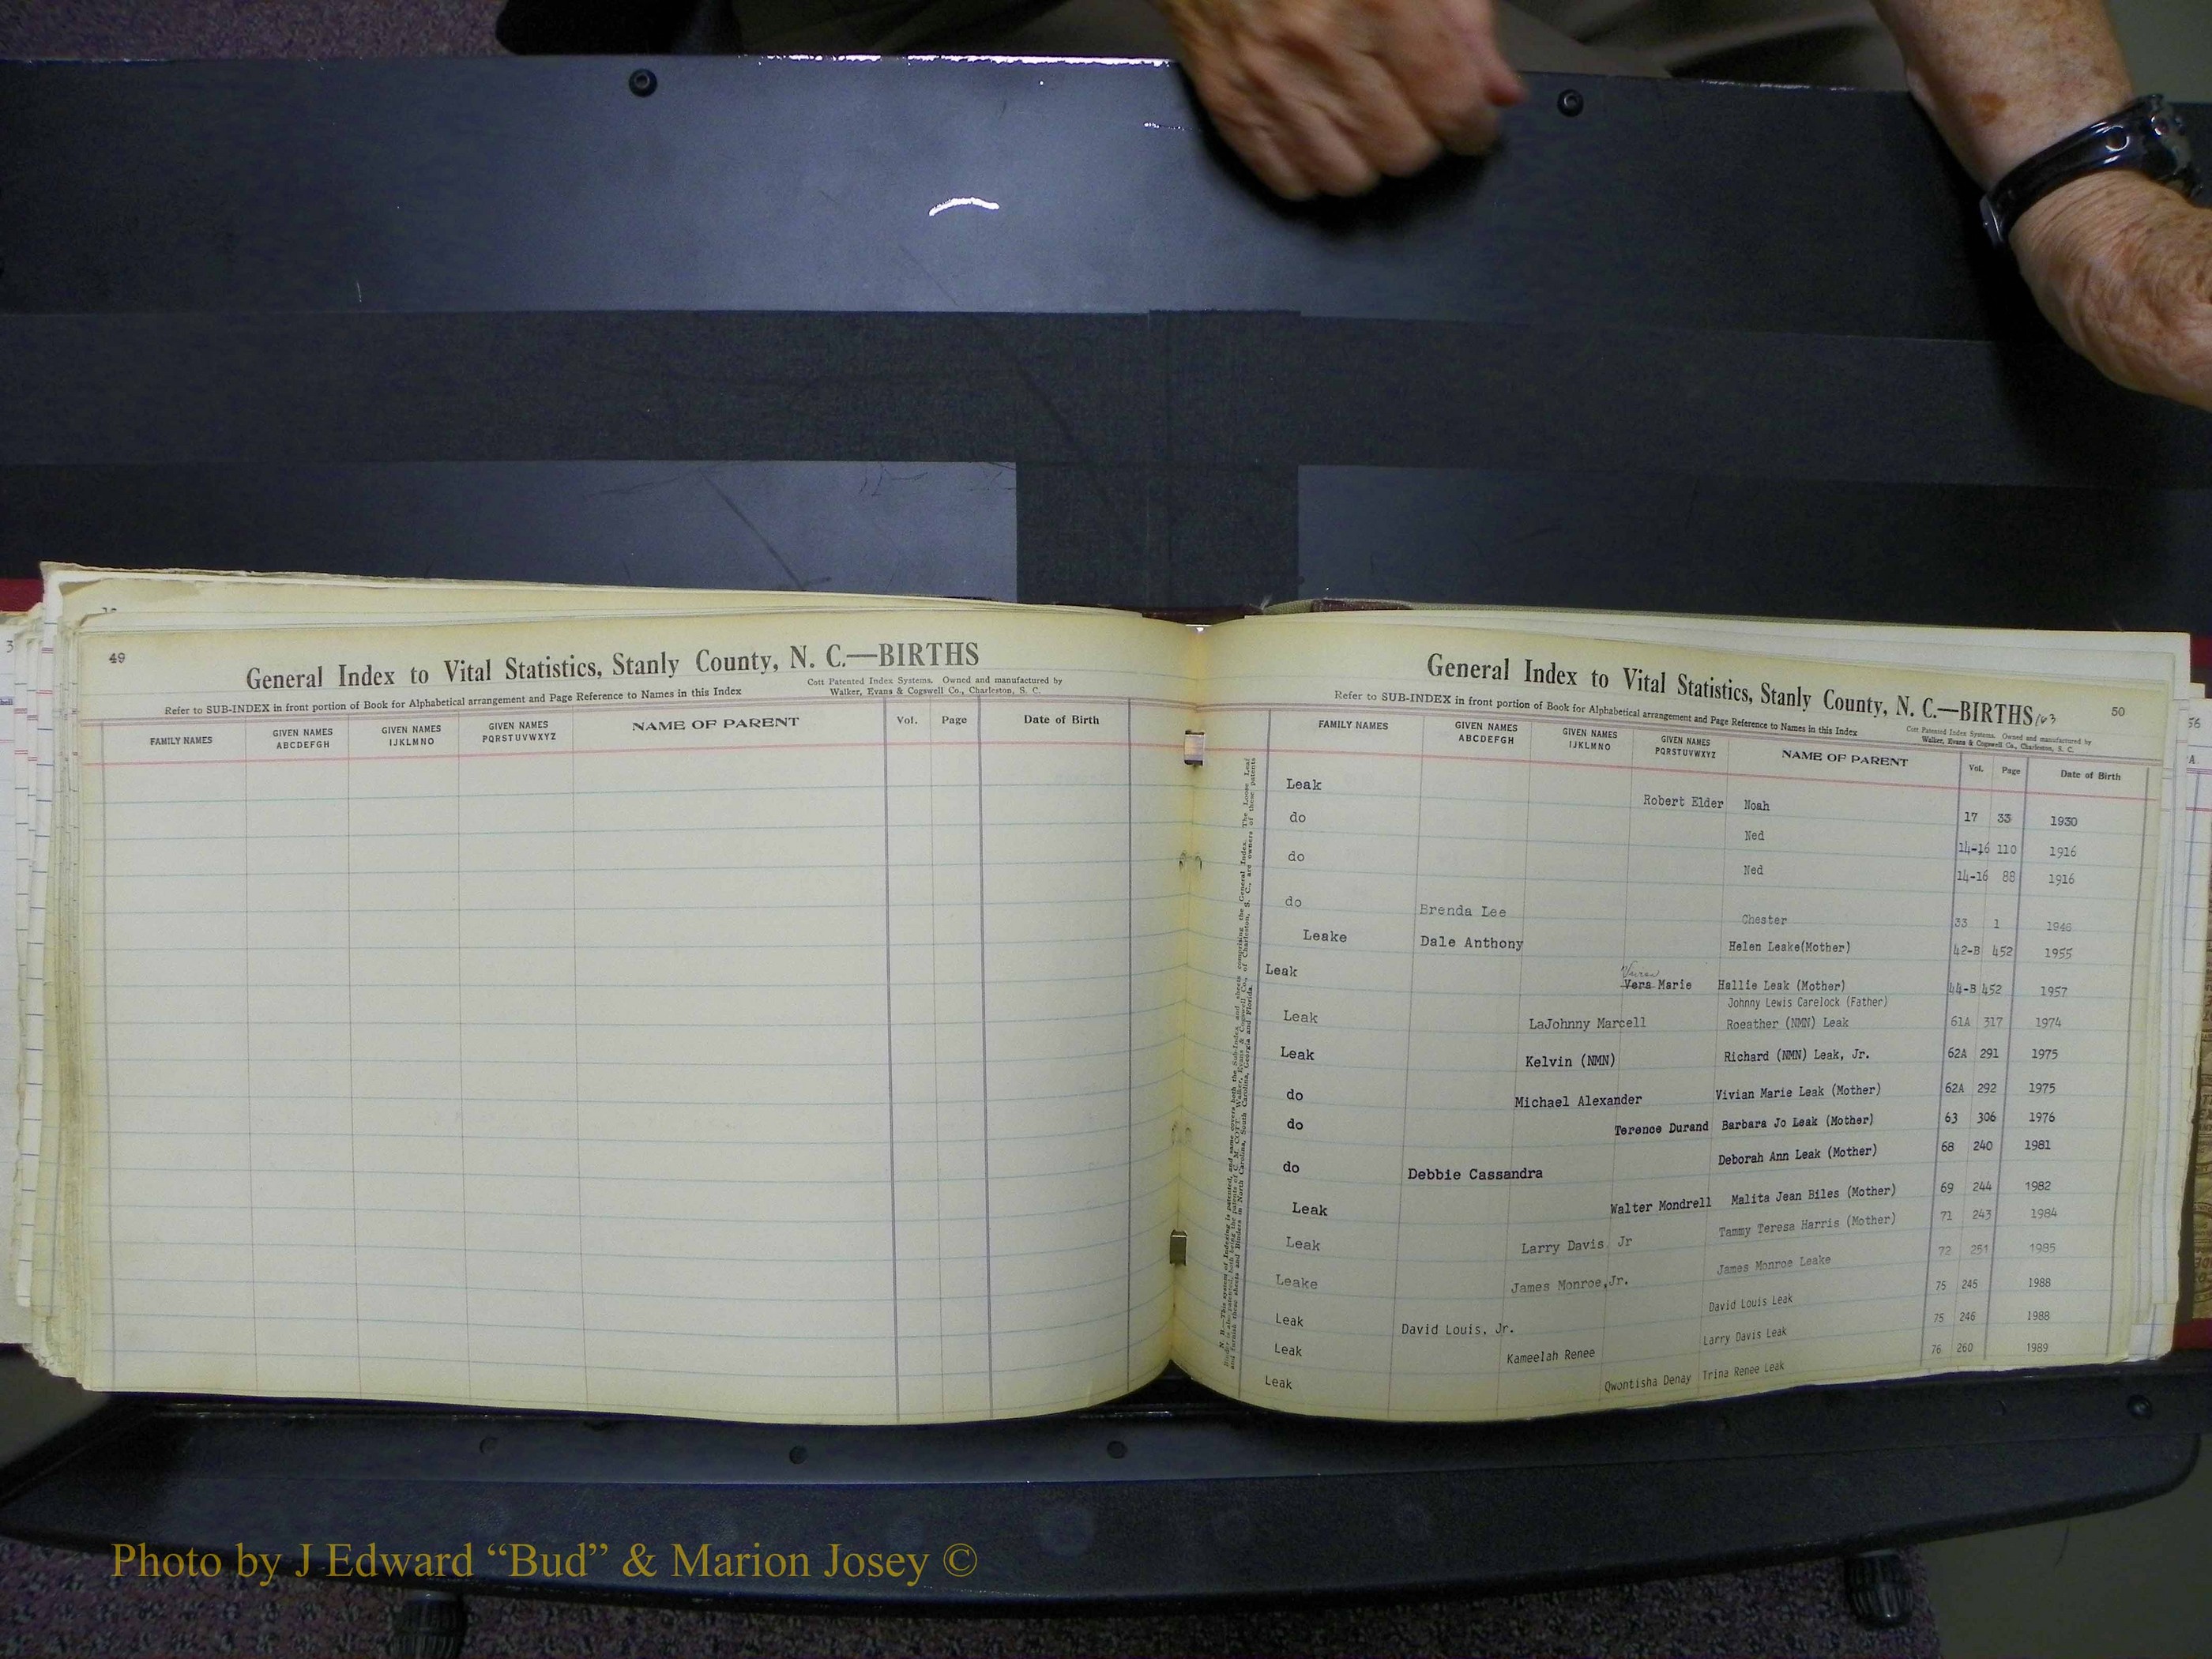 49
General Index to Vital Statistics, Stanly County, N. C.—BIRTHS
Refer to SUB-INDEX in front portion of Book for Alphabetical arrangement and Page Reference to Names in this Index
Cott Patented Index Systems. Owned and manufactured by
Walker, Evans & Cogswell Co., Charleston, S. C.
FAMILY NAMES GIVEN NAMES ABCDEFGH GIVEN NAMES IJKLMNO GIVEN NAMES PQRSTUVWXYZ NAME OF PARENT Vol. Page Date of Birth
General Index to Vital Statistics, Stanly County, N. C.—BIRTHS
50
Refer to SUB-INDEX in front portion of Book for Alphabetical arrangement and Page Reference to Names in this Index
Cott Patented Index Systems. Owned and manufactured by
Walker, Evans & Cogswell Co., Charleston, S. C.
FAMILY NAMES GIVEN NAMES ABCDEFGH GIVEN NAMES IJKLMNO GIVEN NAMES PQRSTUVWXYZ NAME OF PARENT Vol. Page Date of Birth
Leak Robert Elder Noah 17 33 1930
do Ned 14-16 110 1916
do Ned 14-16 88 1916
do Brenda Lee Chester 33 1
Leake Dale Anthony Helen Leake(Mother) 42-B 452 1955
Leak Vera Marie Hallie Leak (Mother) 44-B 452 1957
Johnny Lewis Carelock (Father)
Leak LaJohnny Marcell Roeather (NMN) Leak 61A 317 1974
Leak Kelvin (NMN) Richard (NMN) Leak, Jr. 62A 291 1975
do Michael Alexander Vivian Marie Leak (Mother) 62A 292 1975
do Terence Durand Barbara Jo Leak (Mother) 63 306 1976
do Debbie Cassandra Deborah Ann Leak (Mother) 68 240 1981
Leak Walter Mondrell Malita Jean Biles (Mother) 69 244 1982
Leak Larry Davis Jr Tammy Teresa Harris (Mother) 71 243 1984
Leake James Monroe,Jr. James Monroe Leake 72 251 1985
Leak David Louis, Jr. David Louis Leak 75 245 1988
Leak Kameelah Renee Larry Davis Leak 75 246 1988
Leak Qwontisha Denay Trina Renee Leak 76 260 1989
Photo by J Edward “Bud” & Marion Josey ©